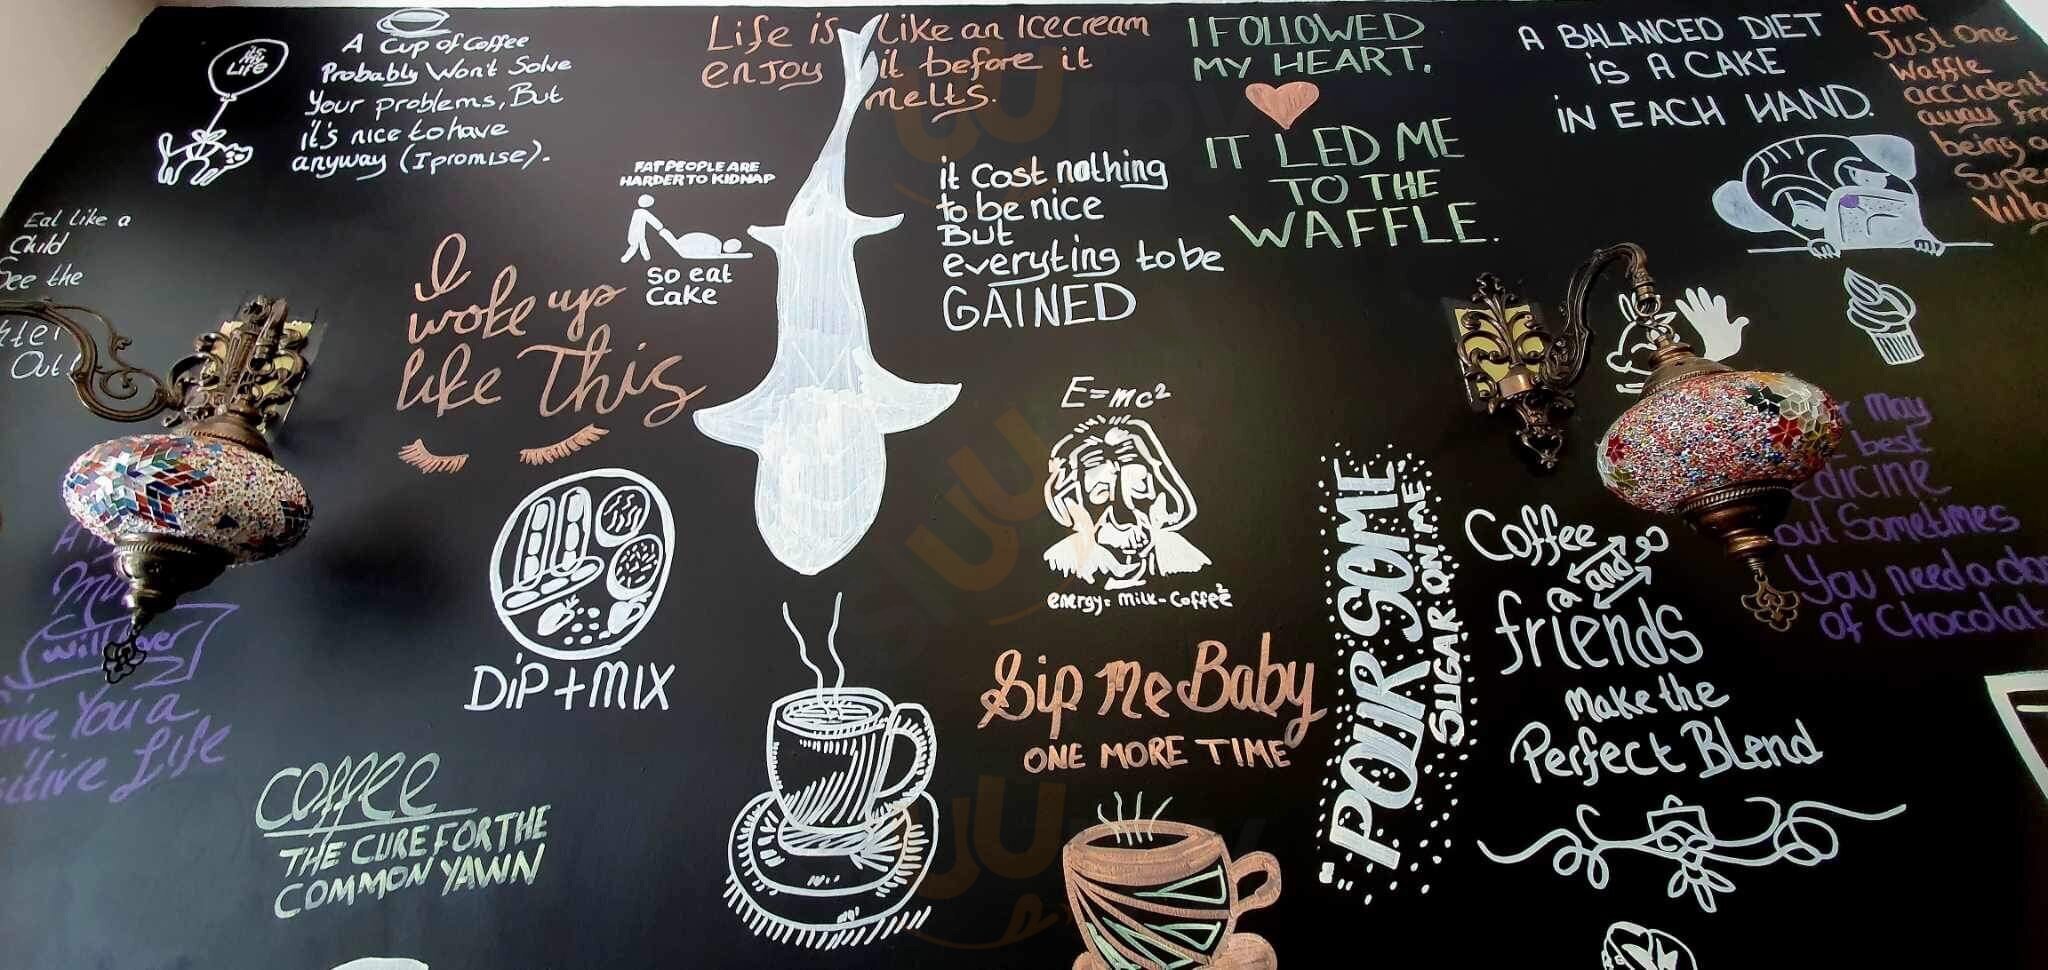 it's
my
Life
A Cup of Coffee
Probably Won't Solve
Your problems, But
it's nice to have
anyway (I promise).
Life is Like an Icecream
enjoy it before it
melts.
I FOLLOWED
MY HEART.
IT LED ME
TO THE
WAFFLE.
A BALANCED DIET
iS A CAKE
iN EACH HAND.
I am
Just One
Waffle
accident
away
being a
FAT PEOPLE ARE
HARDER TO KIDNAP
SO eat
Cake
it Cost nothing
to be nice
But
everyting to be
GAINED
Eat like a
Child
See the
Out!
I
woke up
like This
E=mc²
energy= milk-Coffee²
DiP+MIX
Sip Me Baby
ONE MORE TIME
POUR SOME
SUGAR ON ME
Coffee
and
friends
Make the
Perfect Blend
May
best
Sometimes
You need a
of
You a
Life
Coffee
THE CURE FOR THE
COMMON YAWN